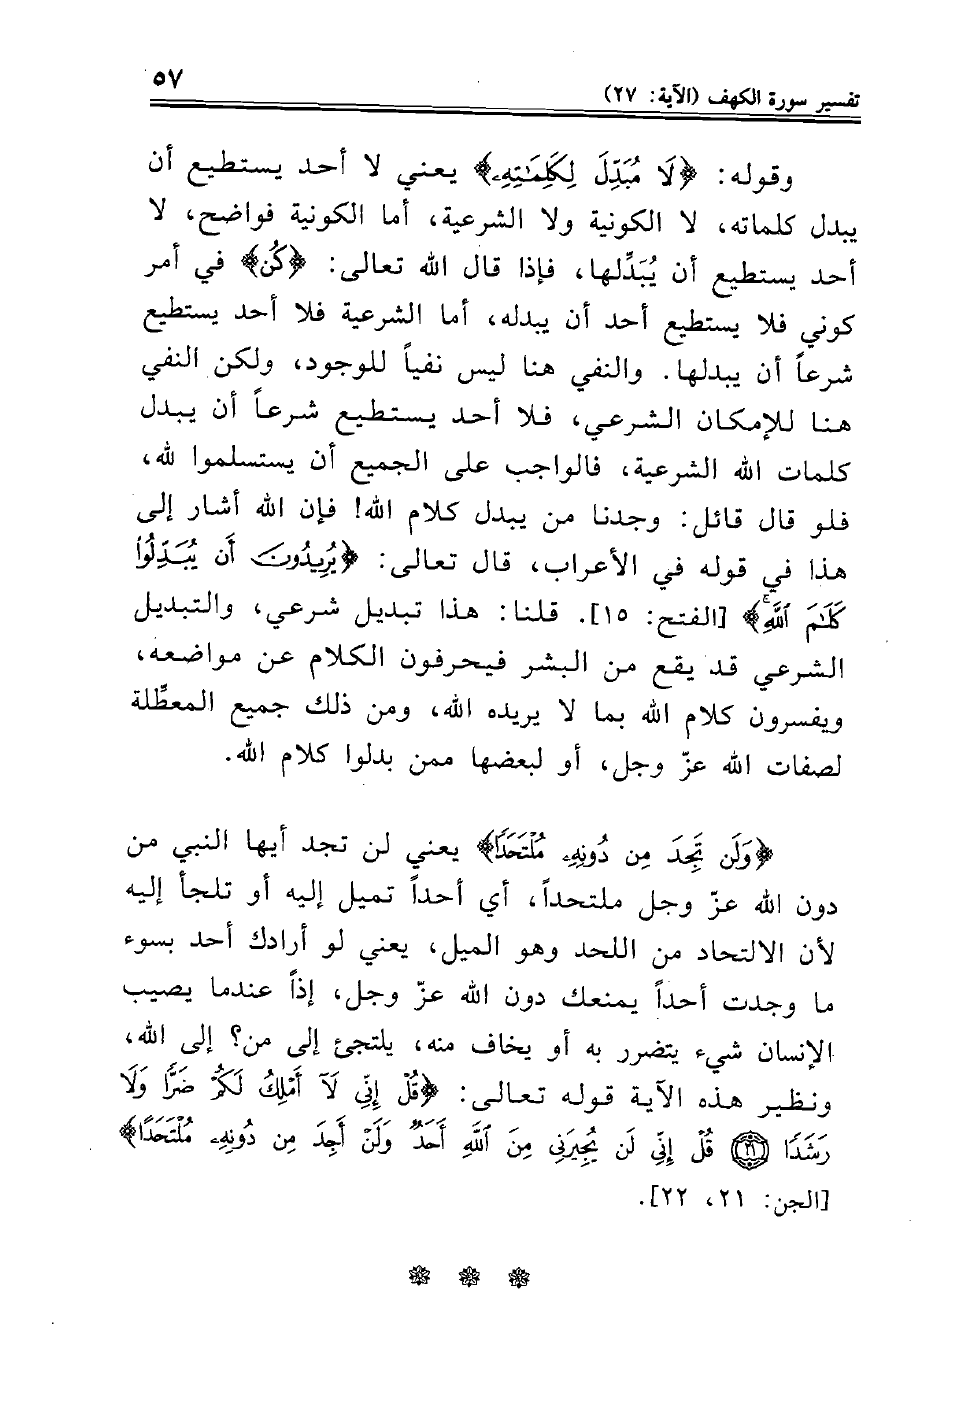 تفسير سورة الكهف (الآية: ٢٧)
٥٧
وقوله: ﴿لَا مُبَدِّلَ لِكَلِمَٰتِهِۦ﴾ يعني لا أحد يستطيع أن
يبدل كلماته، لا الكونية ولا الشرعية، أما الكونية فواضح، لا
أحد يستطيع أن يُبَدِّلها، فإذا قال الله تعالى: ﴿كُن﴾ في أمر
كوني فلا يستطيع أحد أن يبدله، أما الشرعية فلا أحد يستطيع
شرعاً أن يبدلها. والنفي هنا ليس نفياً للوجود، ولكن النفي
هنا للإمكان الشرعي، فلا أحد يستطيع شرعاً أن يبدل
كلمات الله الشرعية، فالواجب على الجميع أن يستسلموا لله،
فلو قال قائل: وجدنا من يبدل كلام الله! فإن الله أشار إلى
هذا في قوله في الأعراب، قال تعالى: ﴿يُرِيدُونَ أَن يُبَدِّلُوا۟
كَلَٰمَ ٱللَّهِۚ﴾ [الفتح: ١٥]. قلنا: هذا تبديل شرعي، والتبديل
الشرعي قد يقع من البشر فيحرفون الكلام عن مواضعه،
ويفسرون كلام الله بما لا يريده الله، ومن ذلك جميع المعطِّلة
لصفات الله عزّ وجل، أو لبعضها ممن بدلوا كلام الله.
﴿وَلَن تَجِدَ مِن دُونِهِۦ مُلْتَحَدًا﴾ يعني لن تجد أيها النبي من
دون الله عزّ وجل ملتحداً، أي أحداً تميل إليه أو تلجأ إليه
لأن الالتحاد من اللحد وهو الميل، يعني لو أرادك أحد بسوء
ما وجدت أحداً يمنعك دون الله عزّ وجل، إذاً عندما يصيب
الإنسان شيء يتضرر به أو يخاف منه، يلتجئ إلى من؟ إلى الله،
ونظير هذه الآية قوله تعالى: ﴿قُلْ إِنِّي لَآ أَمْلِكُ لَكُمْ ضَرًّا وَلَا
رَشَدًا ٢١ قُلْ إِنِّي لَن يُجِيرَنِي مِنَ ٱللَّهِ أَحَدٌ وَلَنْ أَجِدَ مِن دُونِهِۦ مُلْتَحَدًا﴾
[الجن: ٢١، ٢٢].